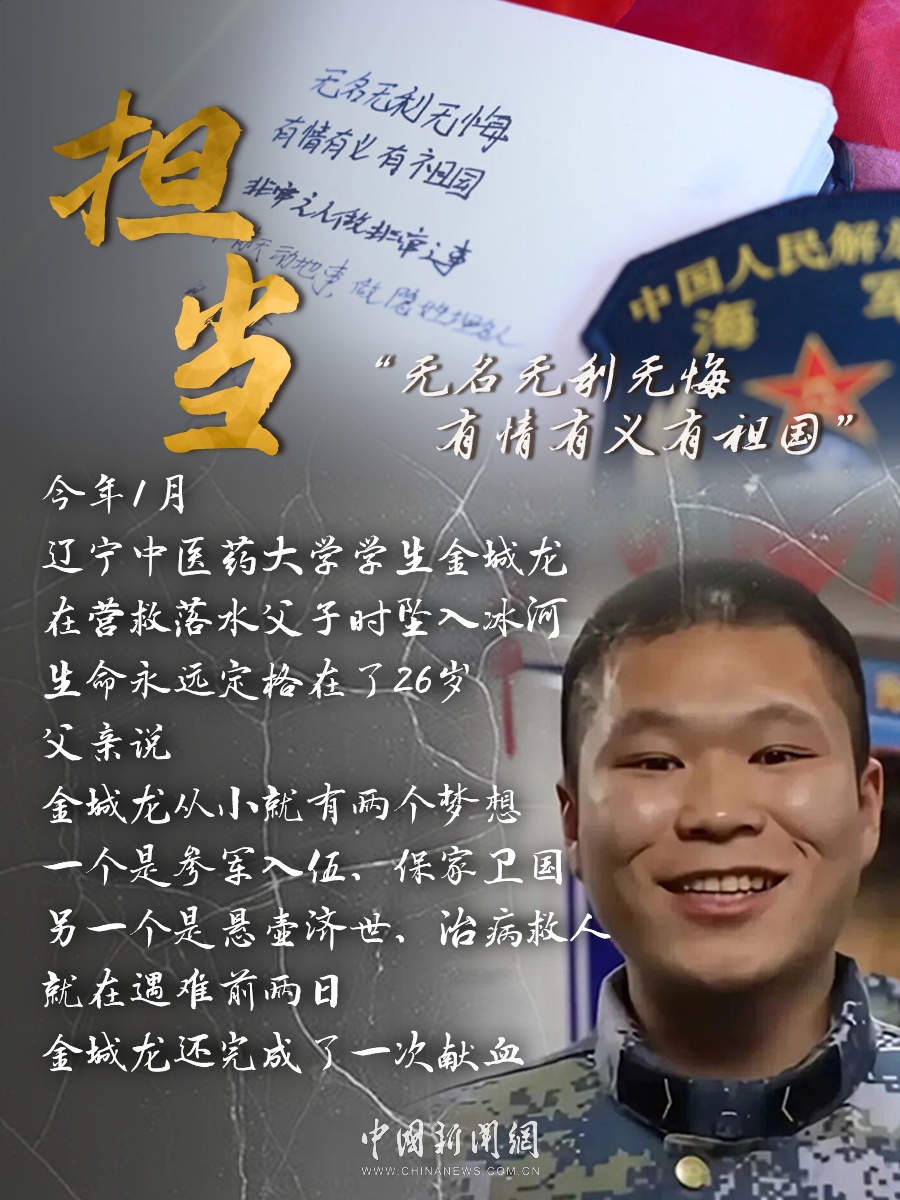 无名无利无悔
有情有义有祖国
非常之人做非常之事
动地事,做隐姓埋名人
中国人民解放
海军
担
当
“无名无利无悔
有情有义有祖国”
今年1月
辽宁中医药大学学生金城龙
在营救落水父子时坠入冰河
生命永远定格在了26岁
父亲说
金城龙从小就有两个梦想
一个是参军入伍、保家卫国
另一个是悬壶济世、治病救人
就在遇难前两日
金城龙还完成了一次献血
中國新聞網
WWW.CHINANEWS.COM.CN